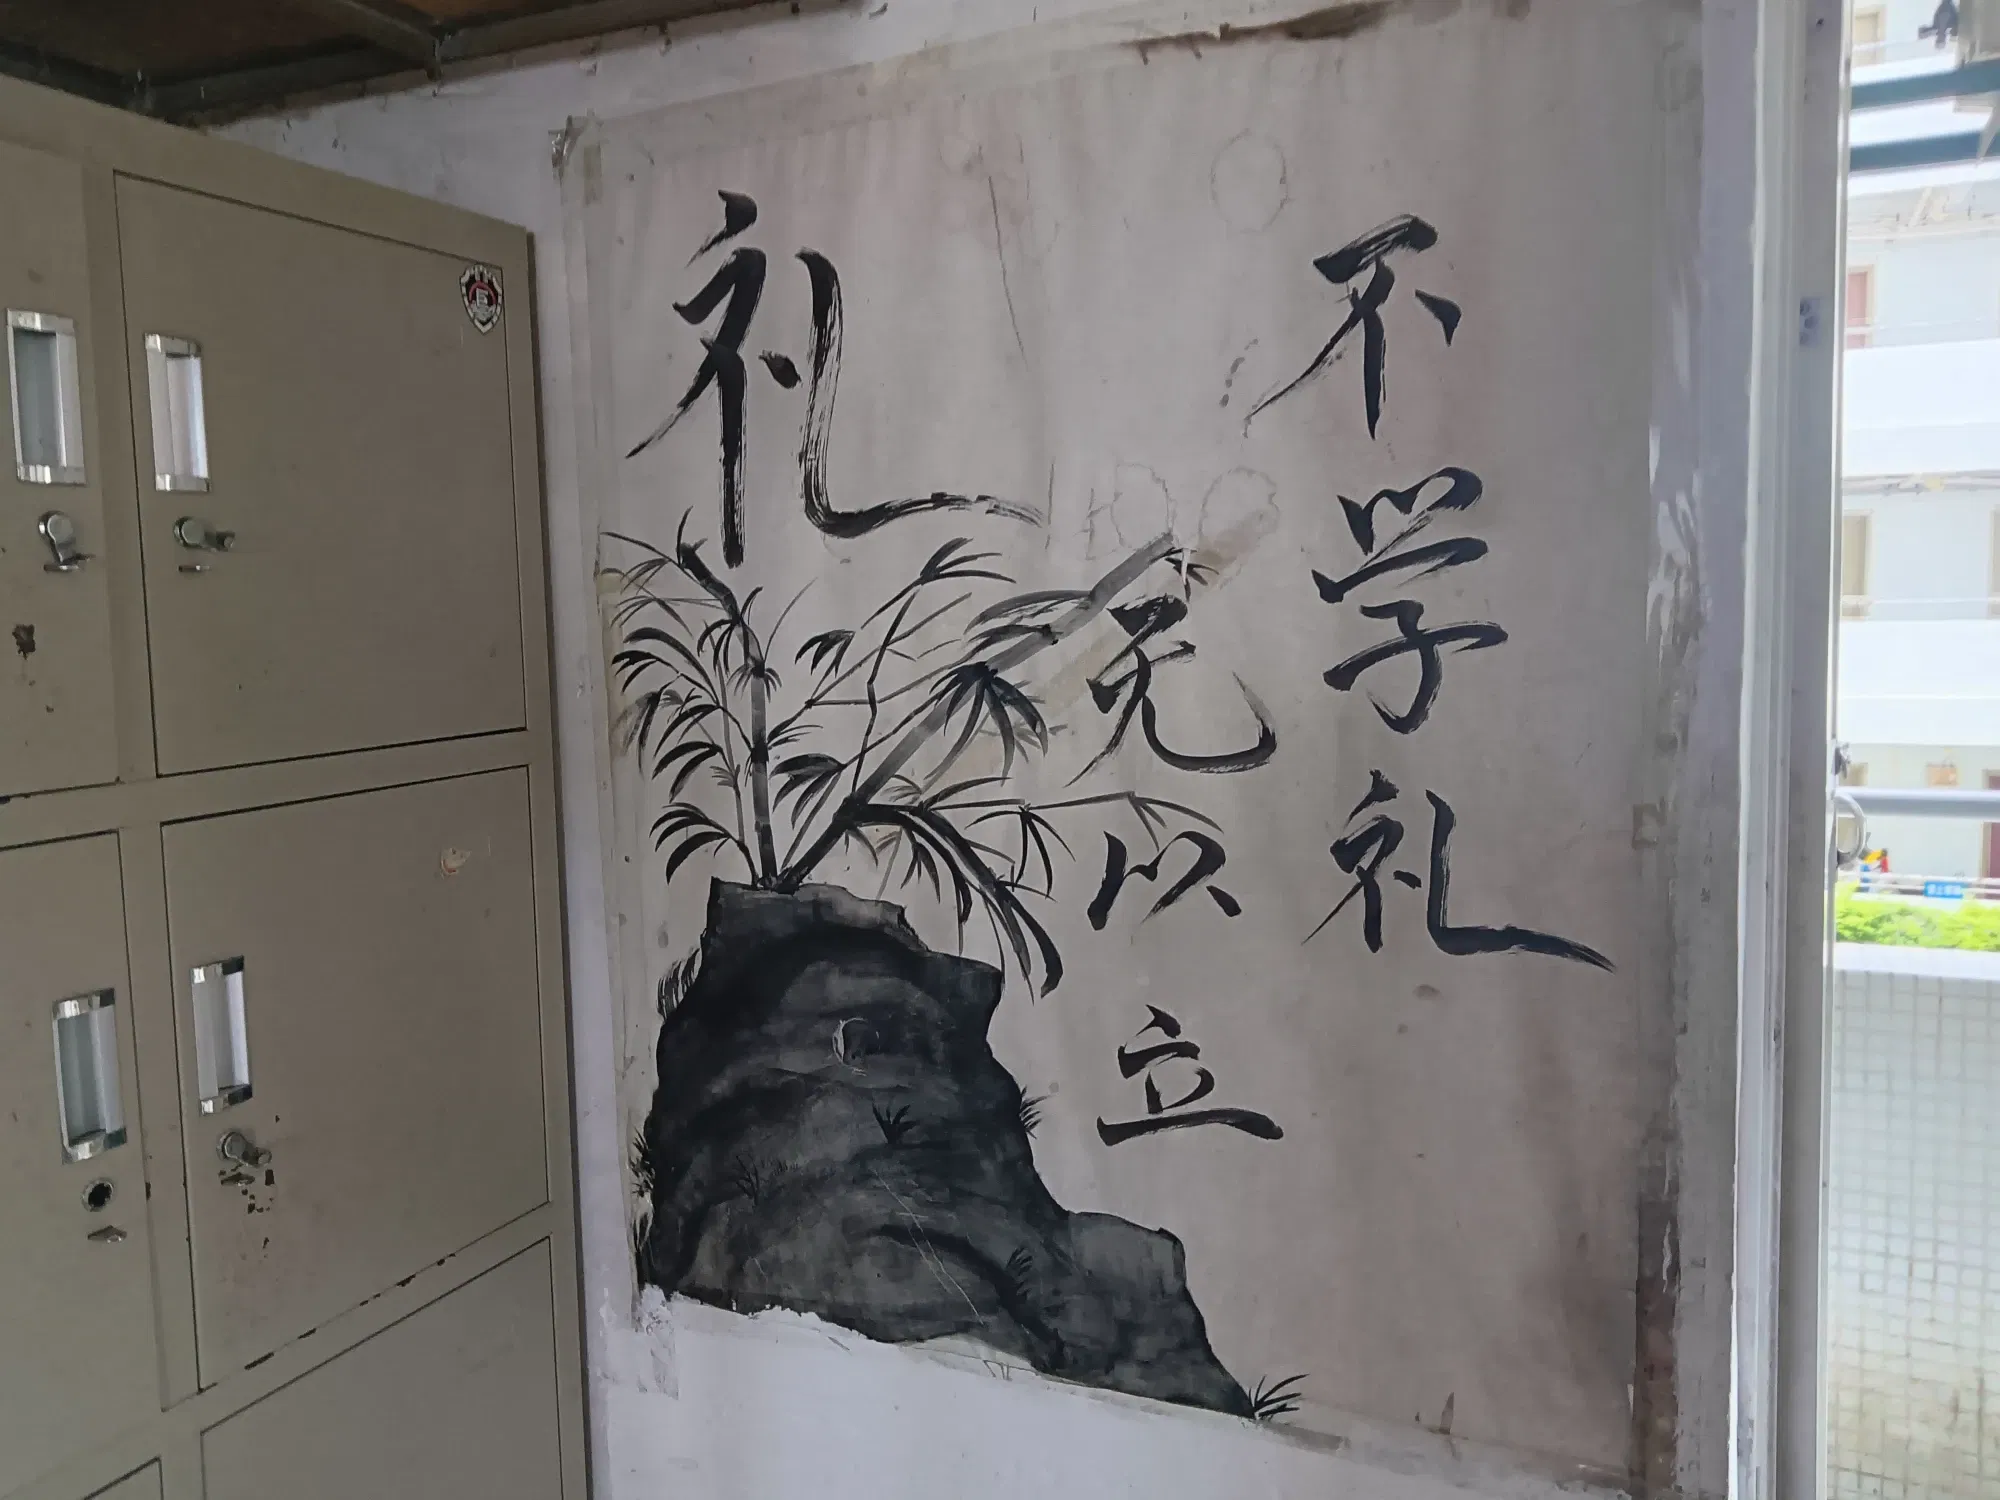 不学礼
无以立
礼